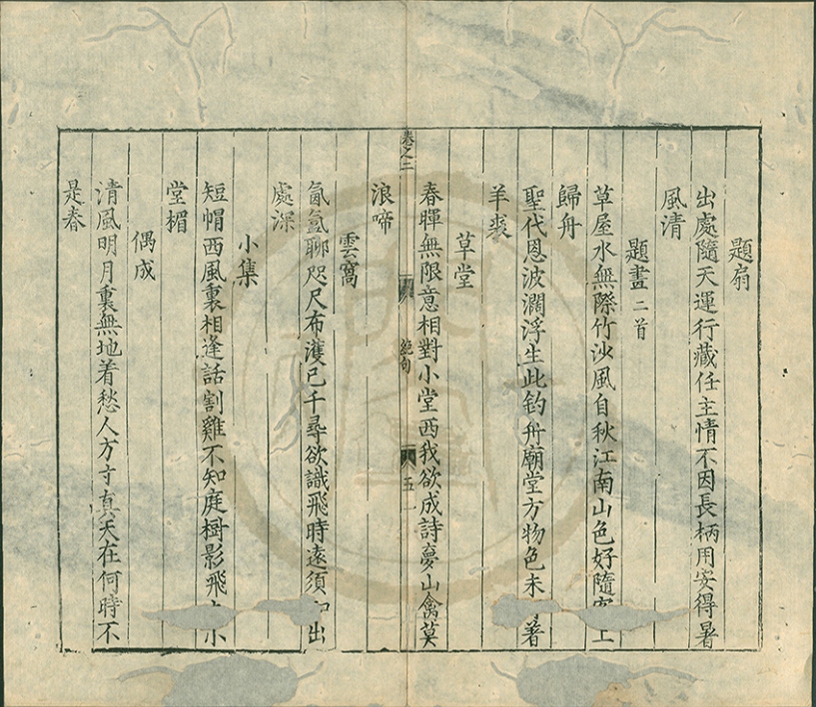 題扇
出處隨天運行藏任主情不因長柄用安得暑
風清
題畫二首
草屋水無際竹沙風自秋江南山色好隨上
歸舟
聖代恩波濶浮生此釣舟廟堂方物色未著
羊裘
草堂
春暉無限意相對小堂西我欲成詩夢山禽莫
浪啼
卷之二
絶句
五
雲窩
氤氳聊咫尺布濩已千尋欲識飛時遠須出
處深
小集
短帽西風裏相逢話割雞不知庭樹影飛小
堂楣
偶成
清風明月裏無地着愁人方寸真天在何時不
是春